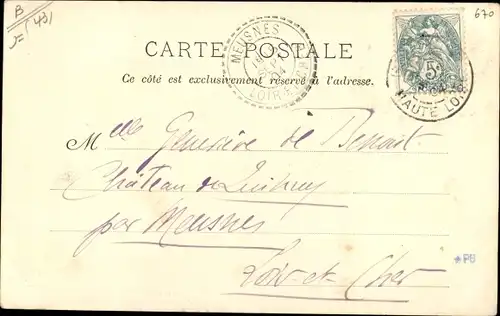 B
(43)
670
CARTE POSTALE
Ce côté est exclusivement réservé à l'adresse.
MEUSNES
04
LOIR-&-CHER
5c
HAUTE LOIRE
Mlle Geneviève de Benoist
Château de Quincy
par Meusnes
Loir-et-Cher
*PB